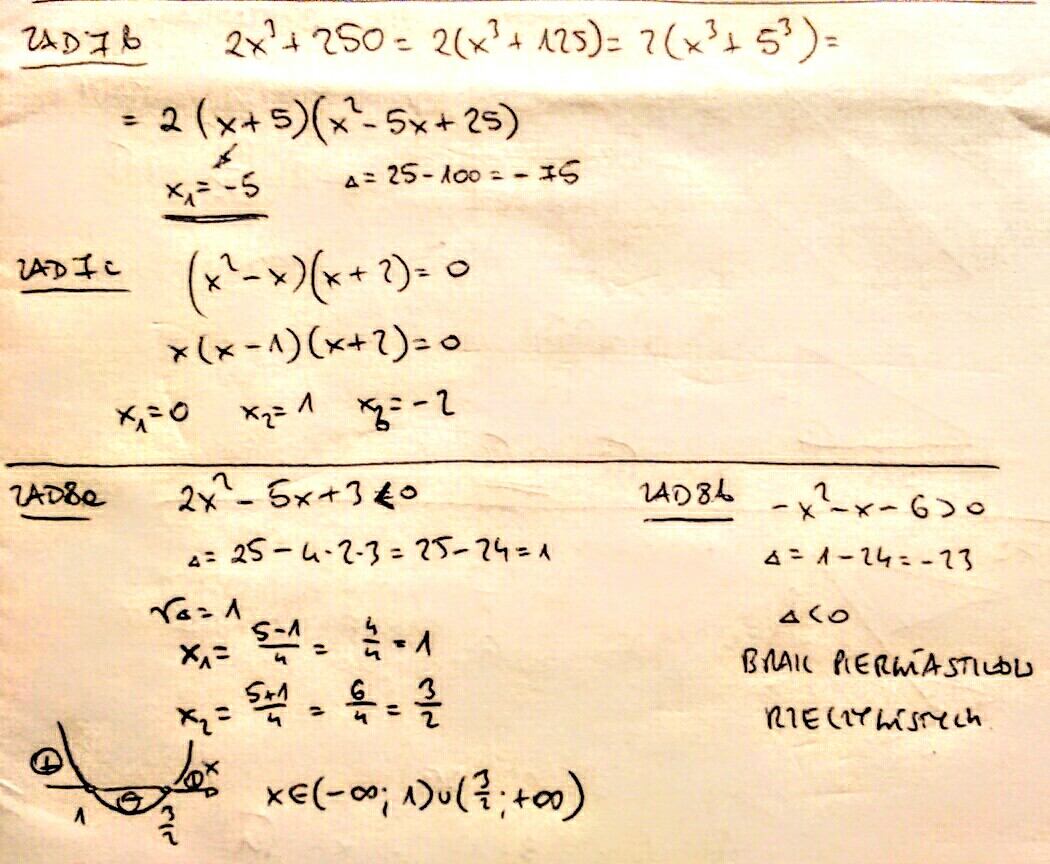 ZAD 7b 2x³ + 250 = 2(x³ + 125) = 2(x³ + 5³) =
= 2(x + 5)(x² - 5x + 25)
x₁ = -5 Δ = 25 - 100 = - 75
ZAD 7c (x² - x)(x + 2) = 0
x(x - 1)(x + 2) = 0
x₁ = 0 x₂ = 1 x₃ = - 2
ZAD 8a 2x² - 5x + 3 < 0
Δ = 25 - 4·2·3 = 25 - 24 = 1
√Δ = 1
x₁ = (5-1)/4 = 4/4 = 1
x₂ = (5+1)/4 = 6/4 = 3/2
+ - + x
1 3/2
x∈(-∞; 1)∪(3/2; +∞)
ZAD 8b -x² - x - 6 > 0
Δ = 1 - 24 = - 23
Δ < 0
BRAK PIERWIASTKÓW
RZECZYWISTYCH